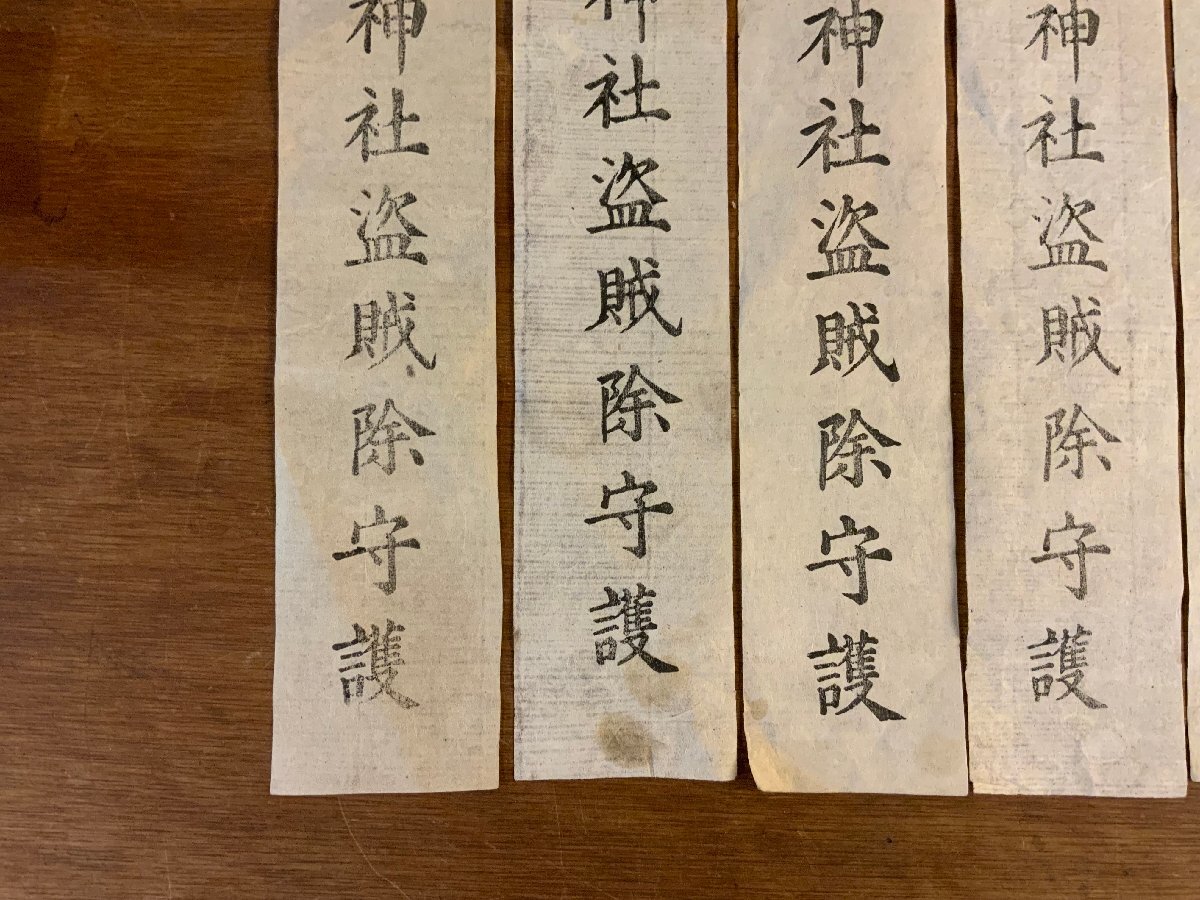 神社盗賊除守護
神社盗賊除守護
神社盗賊除守護
神社盗賊除守護